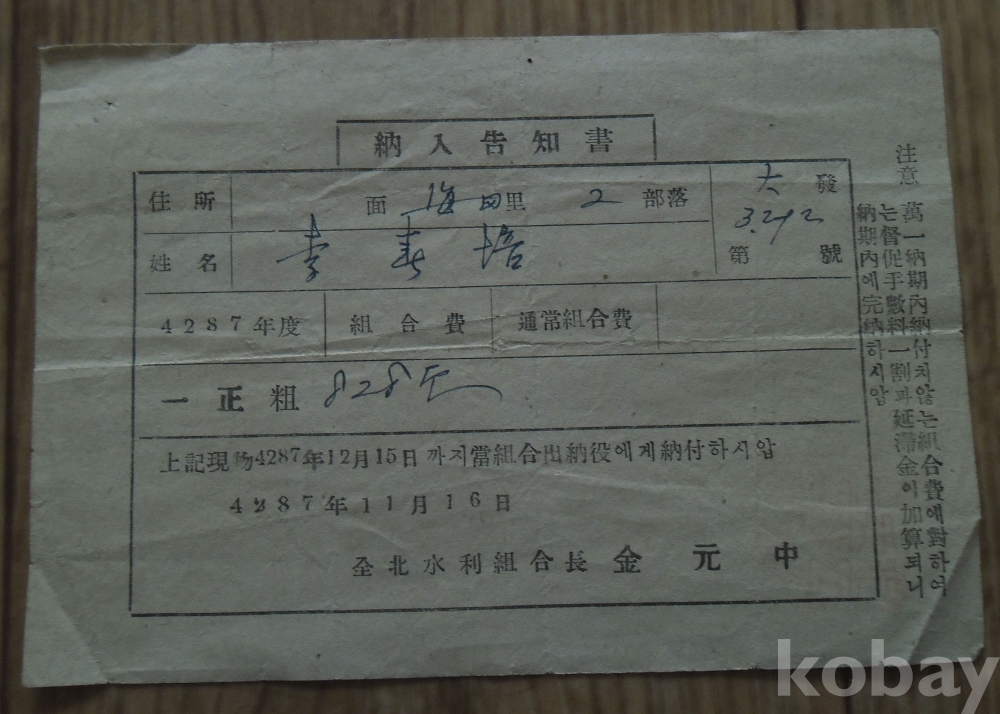 納入告知書
住所 面 海田里 2 部落
大發
3.212
第 號
姓名 李春培
4287年度 組合費 通常組合費
一正粗 828
上記現物4287年12月15日까지當組合出納役에게納付하시압
4287年11月16日
全北水利組合長 金元中
注意
萬一納期內納付치않는組合費에對하여
는督促手數料一割과延滯金이加算되니
納期內에完納하시압
kobay